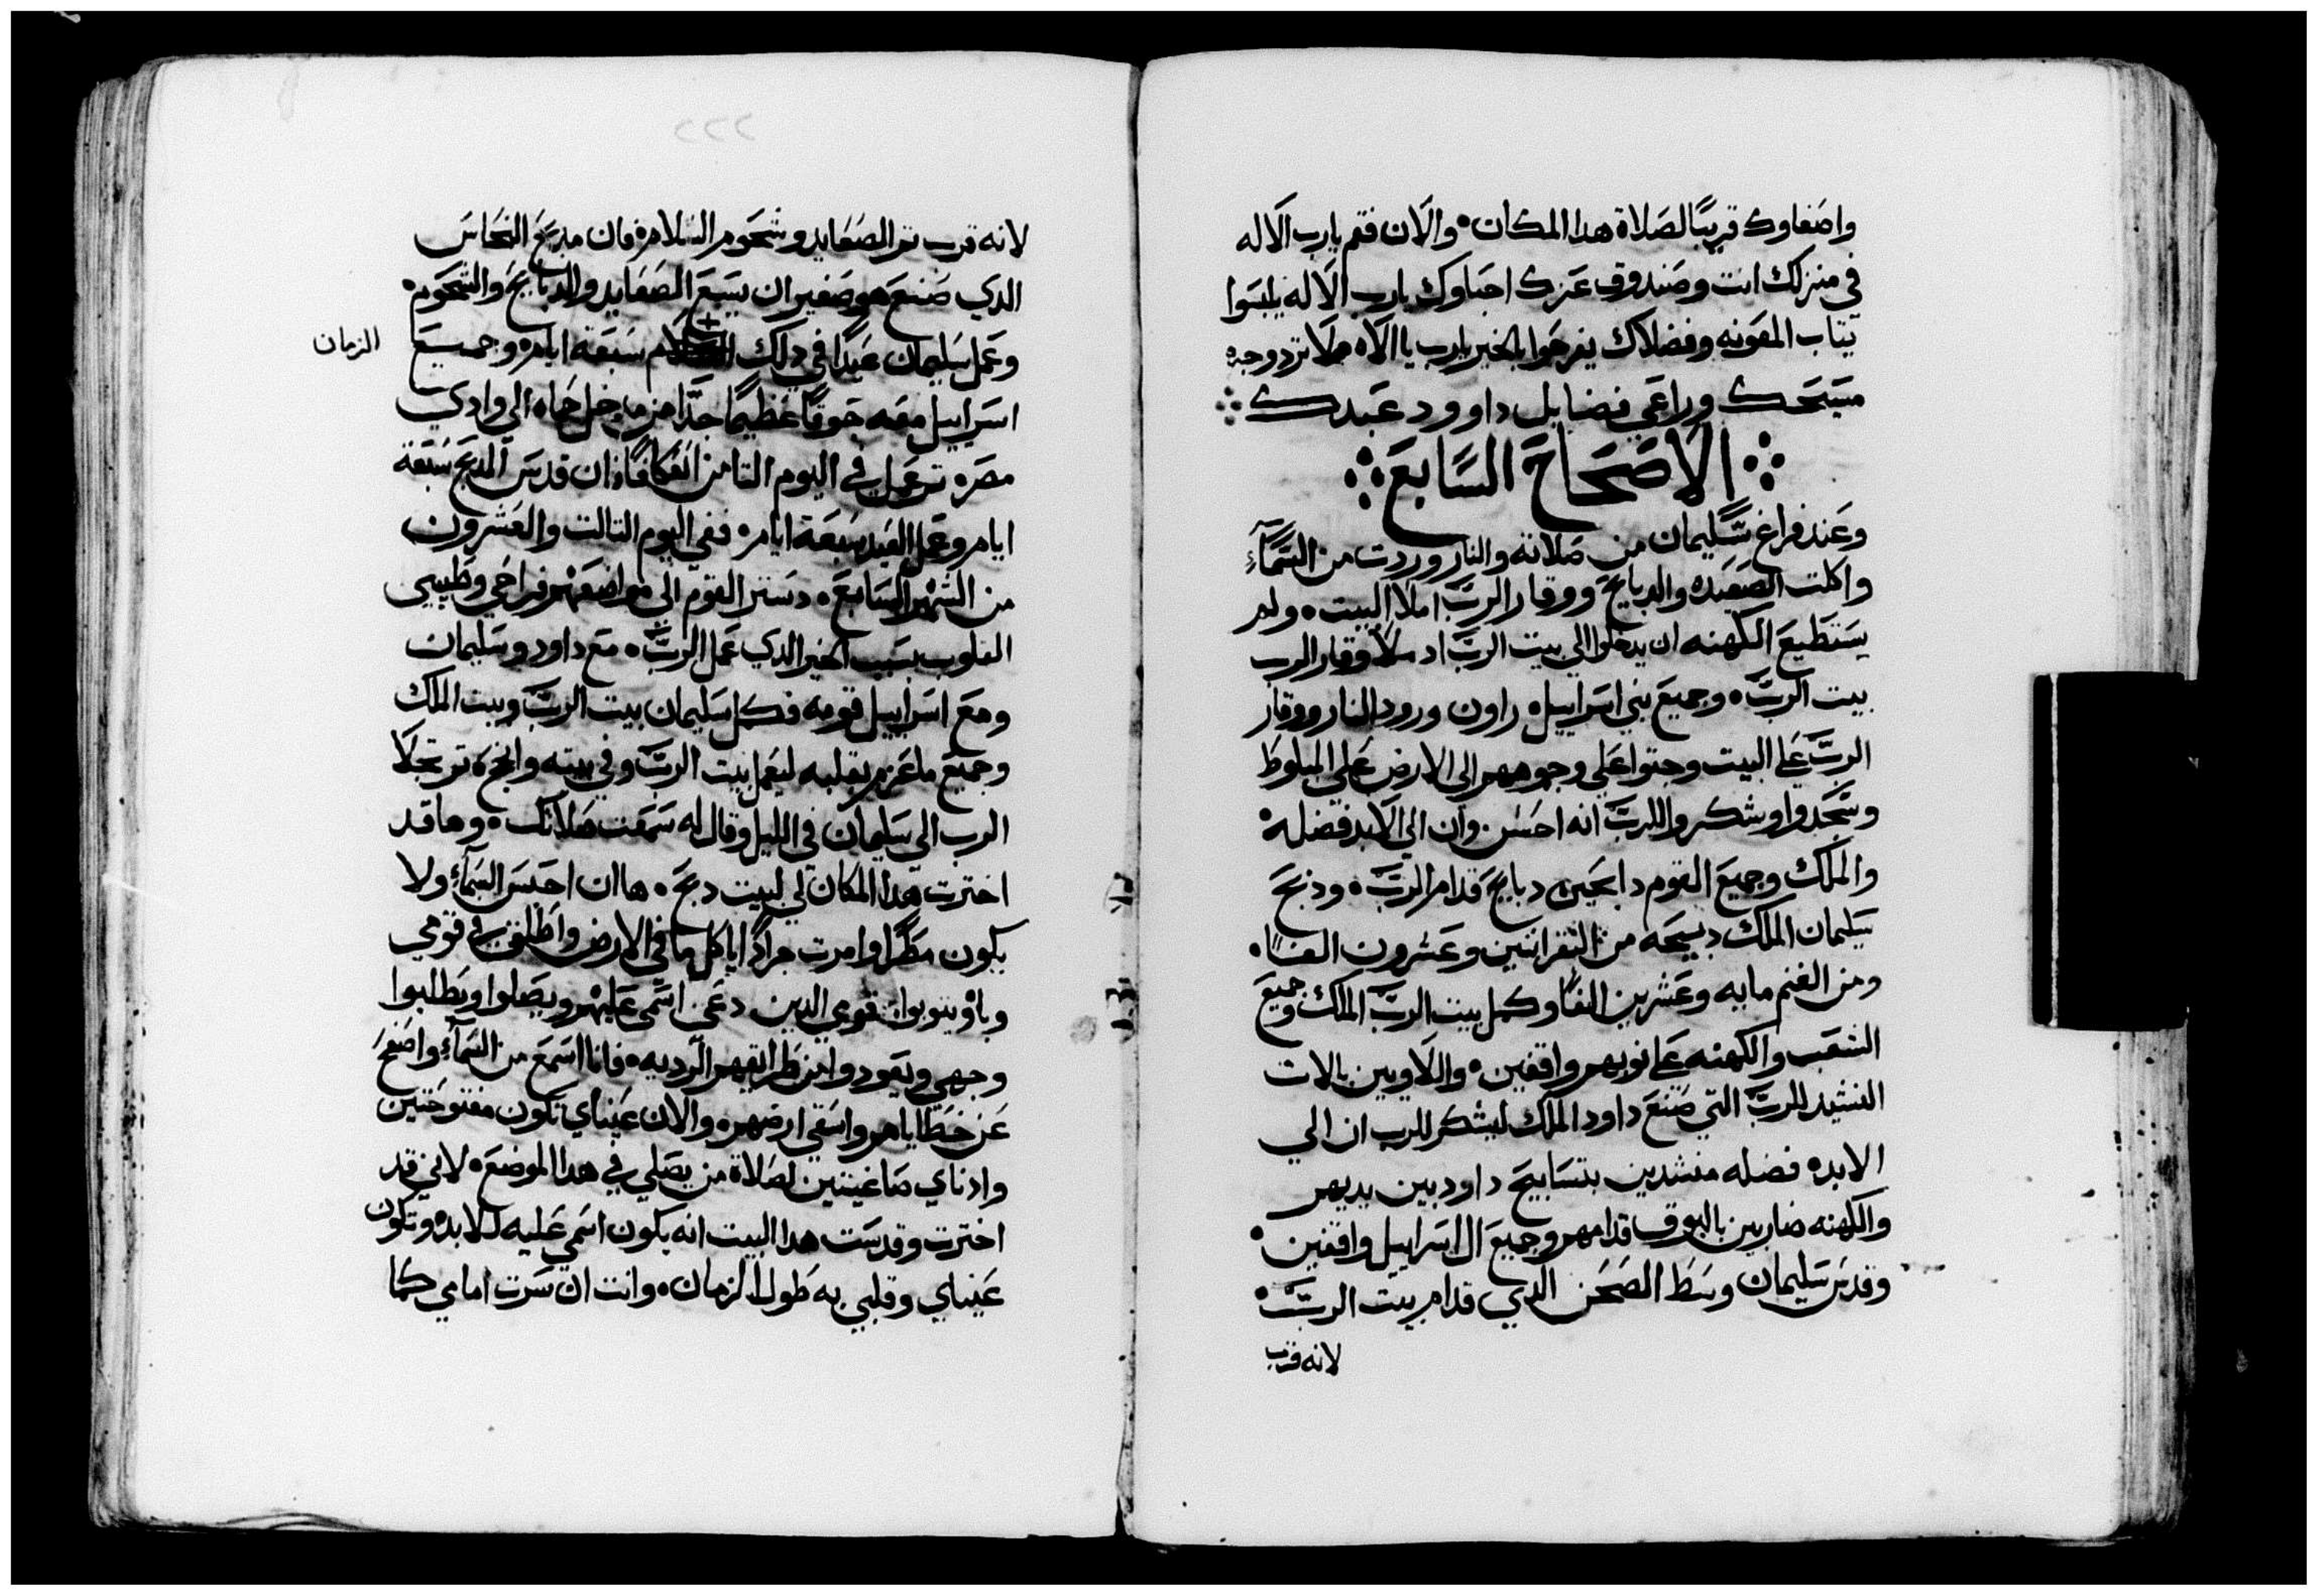 واصغاوك قريبًا لصلاة هدا المكان والان فقم يارب الاله
في منزلك انت وصندوق عزك احباوك يارب الاله يلبسوا
تياب المعونه وفضلاك يفرحوا بالخير يارب يا الاه لا ترد وجه
مسيحك وراعي فضايل داوود عبدك
الاصحاح السابع
وعند فراغ سليمان من صلاته والنار وردت من السمآء
واكلت الصعيده والدبايح ووقار الرب املا البيت ولم
يستطيع الكهنه ان يدخلوا الي بيت الرب اد ملا وقار الرب
بيت الرب وجميع بني اسراييل راون ورود النار ووقار
الرب علي البيت وجتوا علي وجوههم الي الارض علي البلوط
وسجدوا وشكروا للرب انه احسن وان الي الابد فضله
والملك وجميع القوم دابحين دبايح قدام الرب ودبح
سليمان الملك دبيحه من البقر اتنين وعشرون الفًا
ومن الغنم مايه وعشرين الفًا وكمل بيت الرب الملك وجميع
الشعب والكهنه علي نوبهم واقفين واللاويين بالات
النشيد للرب التي صنع داود الملك ليشكر للرب ان الي
الابد فضله منشدين بتسابيح داود بين يديهم
والكهنه ضاربين بالبوق قدامهم وجميع ال اسراييل واقفين
وقدس سليمان وسط الصحن الدي قدام بيت الرب
لانه قرب
٢٢٢
لانه قرب تم الصعايد وشحوم السلامه فان مدبح النحاس
الدي صنع هو صغير ان يسع الصعايد والدبايح والشحوم
وعمل سليمان عيدًا في دلك سبعة ايام وجميع
الزمان
اسراييل معه جوقًا عظيمًا جدًا من مدخل حماه الي وادي
مصر تم عمل في اليوم التامن اعتكافًا ان قدس المدبح سبعة
ايام وعمل العيد سبعة ايام ففي اليوم التالت والعشرون
من الشهر السابع دستر القوم الي مواضعهم فراحي وطيبي
القلوب بسبب الخير الدي عمل الرب مع داود وسليمان
ومع اسراييل قومه فكمل سليمان بيت الرب وبيت الملك
وجميع ما عزم بقلبه ليعمل بيت الرب وفي بيته وانجح تم تجلا
الرب الي سليمان في الليل وقال له سمعت صلاتك وها قد
اخترت هدا المكان لي لبيت دبح ها ان احبس السمآء ولا
يكون مطرًا وامرت جرادًا ياكل ما في الارض واطلق في قومي
وباؤ يتوبوا قومي الدين دعي اسمي عليهم ويصلوا ويطلبوا
وجهي ويعودوا من طرايقهم الرديه فانا اسمع من السمآء واصفح
عن خطاياهم واشفي ارضهم والان عيناي تكون مفتوحتين
وادناي صاغيتين لصلاة من يصلي في هدا الموضع لاني قد
اخترت وقدست هدا البيت انه يكون اسمي عليه للابد وتكون
عيناي وقلبي به طول الزمان وانت ان سرت امامي كما